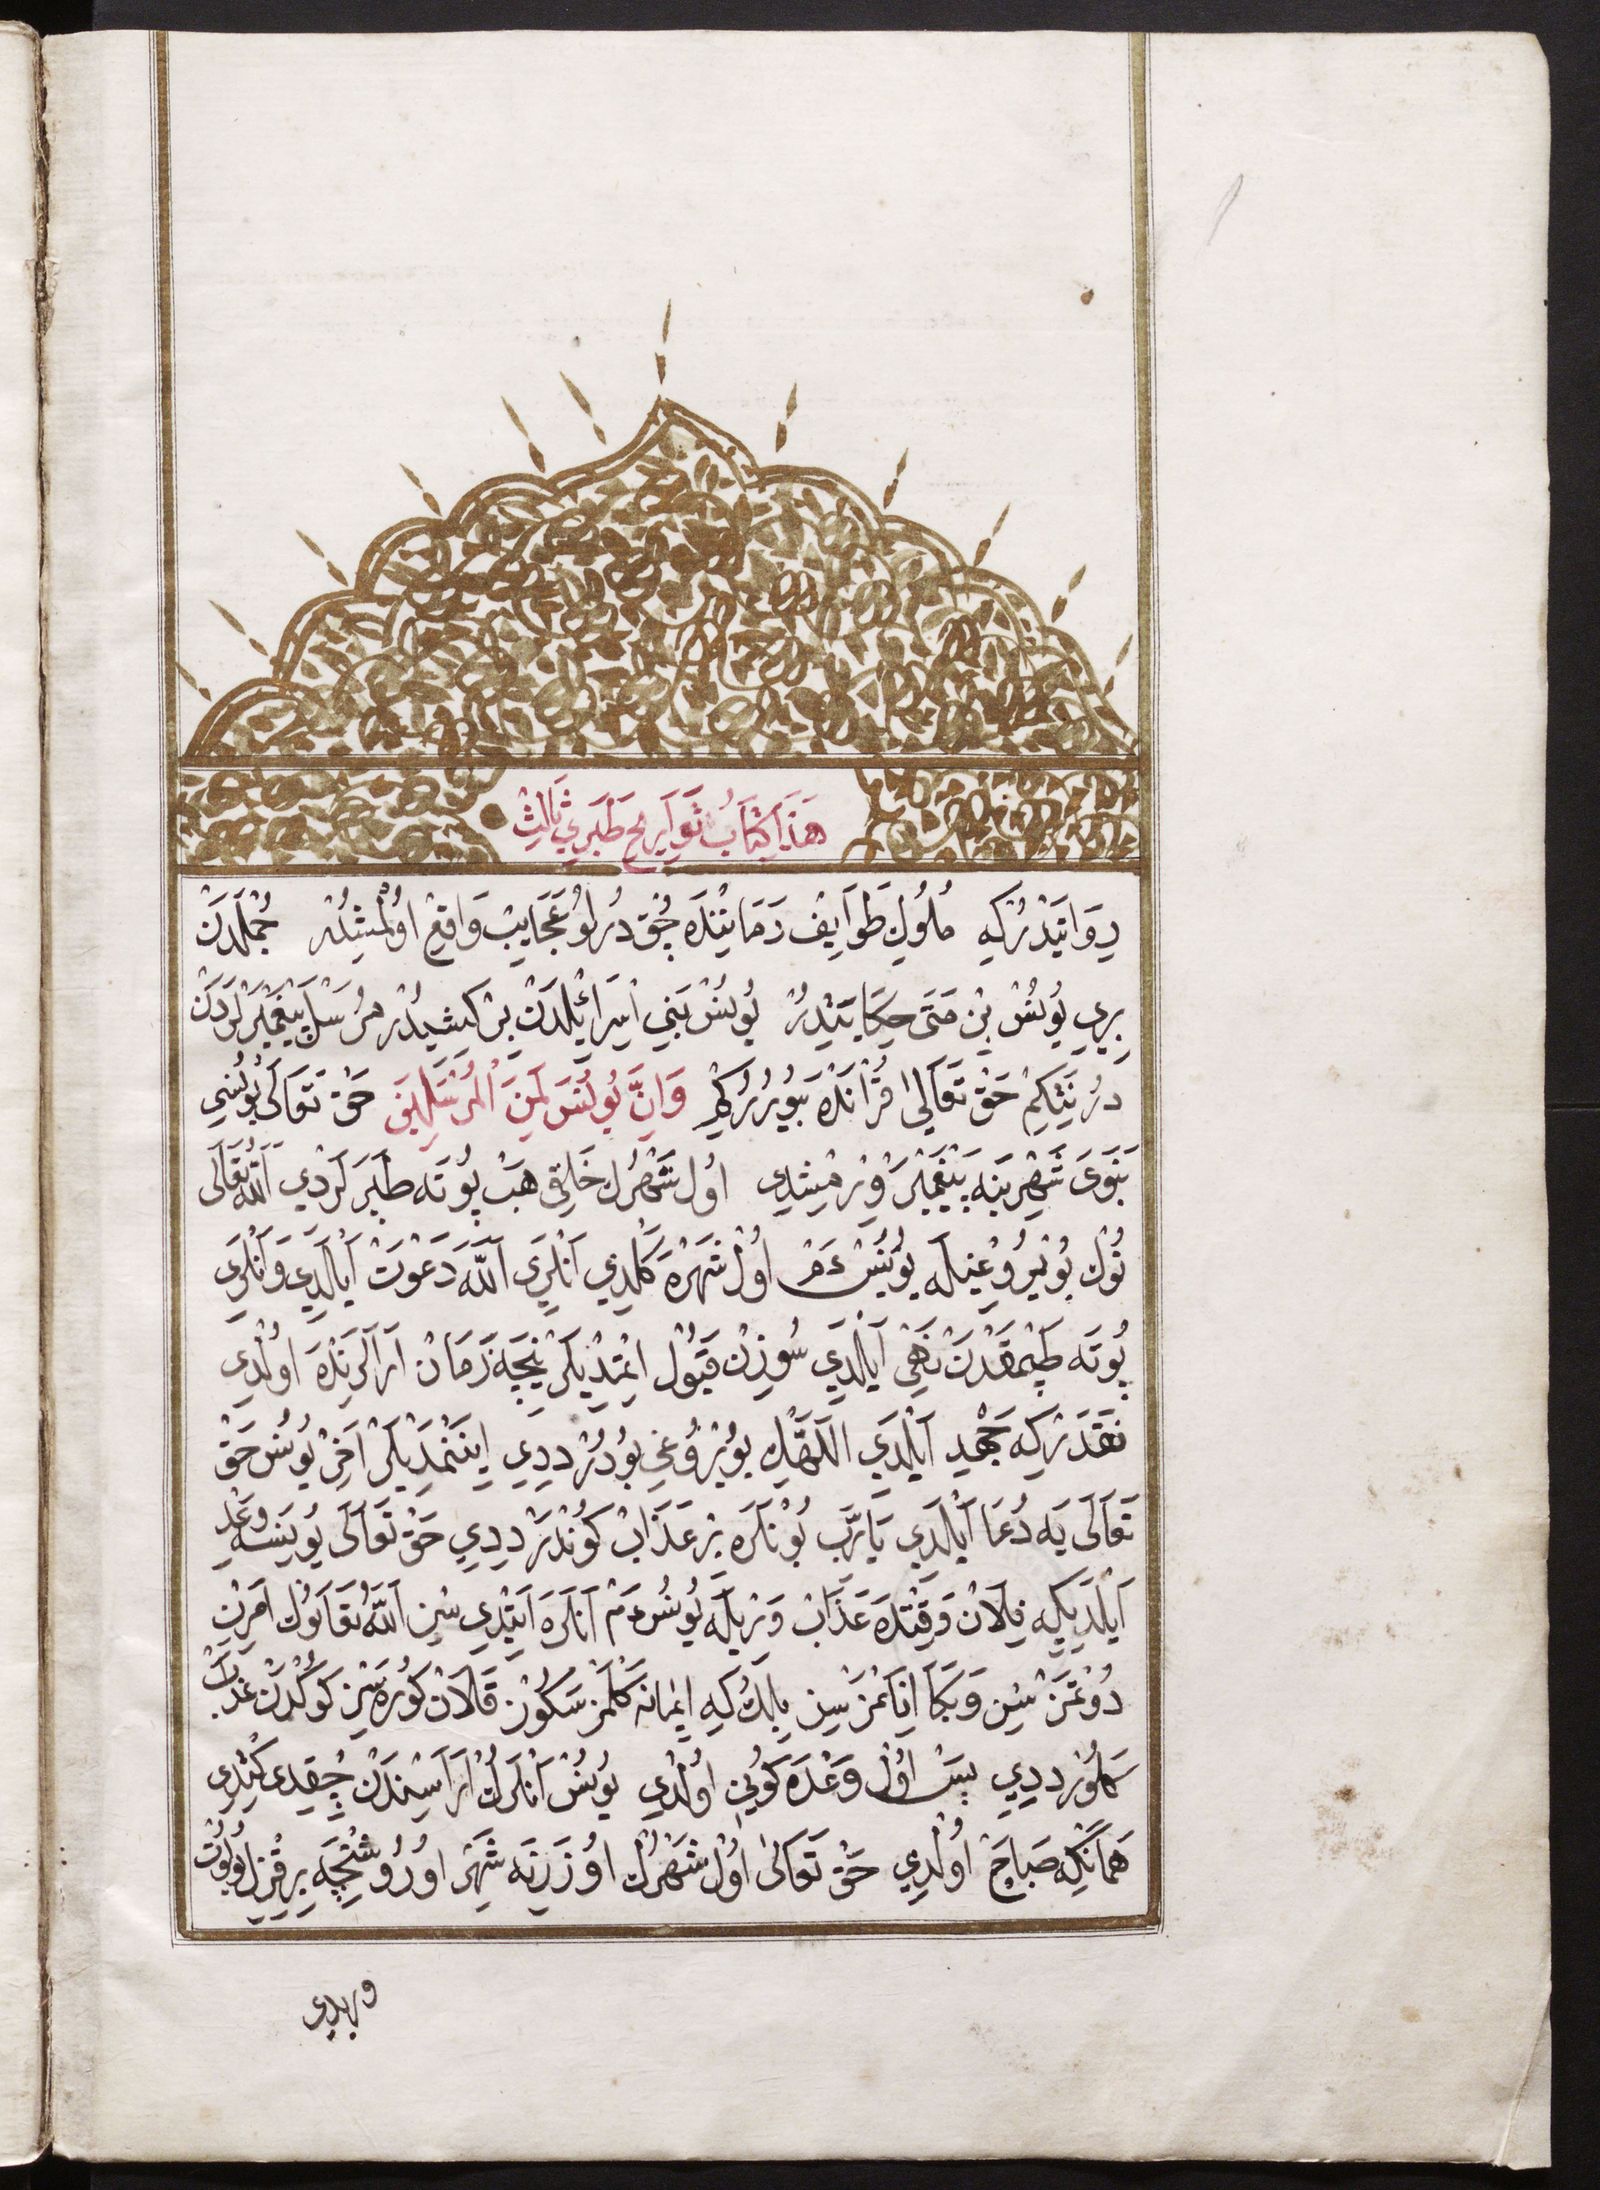 هَذَا كِتَابُ تَوَارِيحِ طَبَرِي ثَالِثْ
رِوَايَتْدُرْكِه مُلُوكِ طَوَايِفْ زَمَانِنْدَه چُوقْ دُرْلُو عَجَايِبْ وَاقِعْ اُولْمِشْدُرْ جُمْلَدَنْ
بِرِي يُونُسْ بِنْ مَتَى حِكَايَتِدِرْ يُونُسْ بَنِي اِسْرَائِلْدَنْ بِرْ كِشِيدُرْ مُرْسَلْ پَيْغَمْبَرْلَرْدَنْ
دُرْ نِتَكِمْ حَقْ تَعَالَى قُرْآنْدَه بُيُورُرْكِمْ وَاِنَّ يُونُسَ لَمِنَ الْمُرْسَلِينَ حَقْ تَعَالَى يُونُسِي
نِينَوَى شَهْرِينَه پَيْغَمْبَرْ وِرْمِشْدِي اُولْ شَهْرُكْ خَلْقِي هَپْ پُوتَه طَپَرْلَرْدِي اَللّٰهُ تَعَالَى
نُوكْ بُويُرُوغِيلَه يُونُسْ ءم اُولْ شَهْرَه كَلْدِي اَنْلَرِي اَللّٰهَ دَعْوَتْ اَيْلَدِي وَاَنْلَرِي
پُوتَه طَپْمَقْدَنْ نَهْيْ اَيْلَدِي سُوزِنْ قَبُولْ اِتْمَدِيلَرْ نِيچَه زَمَانْ اَرَالَرِنْدَه اُولْدِي
نَقَدَرْكِه جَهْدْ اَيْلَدِي اَللّٰهِكْ بُويْرُوغِي بُودُرْ دِدِي اِينَنْمَدِيلَرْ اَخِرْ يُونُسْ حَقْ
تَعَالَى يَه دُعَا اَيْلَدِي يَارَبّ بُونْلَرَه بِرْ عَذَابْ كُونْدَرْ دِدِي حَقْ تَعَالَى يُونُسَه وَعْدَ
اَيْلَدِيكِه فِلَانْ وَقِتْدَه عَذَابْ وِرِيلَه يُونُسْ ءم اَنْلَرَه اَيِتْدِي سِزْ اَللّٰهُ تَعَالَنُوكْ اَمْرِنْ
دُوتْمَزْسِزْ وَبَكَا اِنَانْمَزْسِزْ بِلُكْ كِه اِيمَانَه كَلْمَزْسَكُوزْ قَلَانْ كُورَه سِزْ كُوكْدَنْ عَذَابْ
كَلُورْ دِدِي پَسْ اُولْ وَعْدَه كُونِي اُولْدِي يُونُسْ اَنْلَرُكْ اَرَاسِنْدَنْ چِقْدِي كِتْدِي
هَمَانْكِه صَبَاحْ اُولْدِي حَقْ تَعَالَى اُولْ شَهْرُكْ اُوزَرِنَه شَهْرْ اُورُوشِنْجَه بِرْ قِزِلْ بُولُوتْ
وِيرْدِي